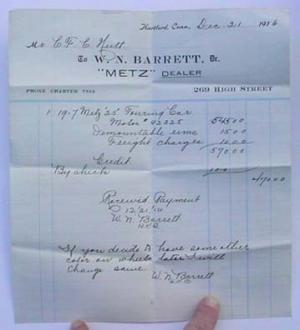 Hartford, Conn. Dec. 21 1916
Mr C. F. C. Hutt
To W. N. BARRETT, Dr.
"METZ" DEALER
PHONE CHARTER 269 HIGH STREET
1 19-7 Metz "25" Touring Car
Motor #42225 545.00
Demountable rims 15.00
Freight charges 10.00
570.00
Credit
By check 100
470.00
Received Payment
12/21/16
W. N. Barrett
If you decide to have some other
color on wheels later I will
change same.
W. N. Barrett